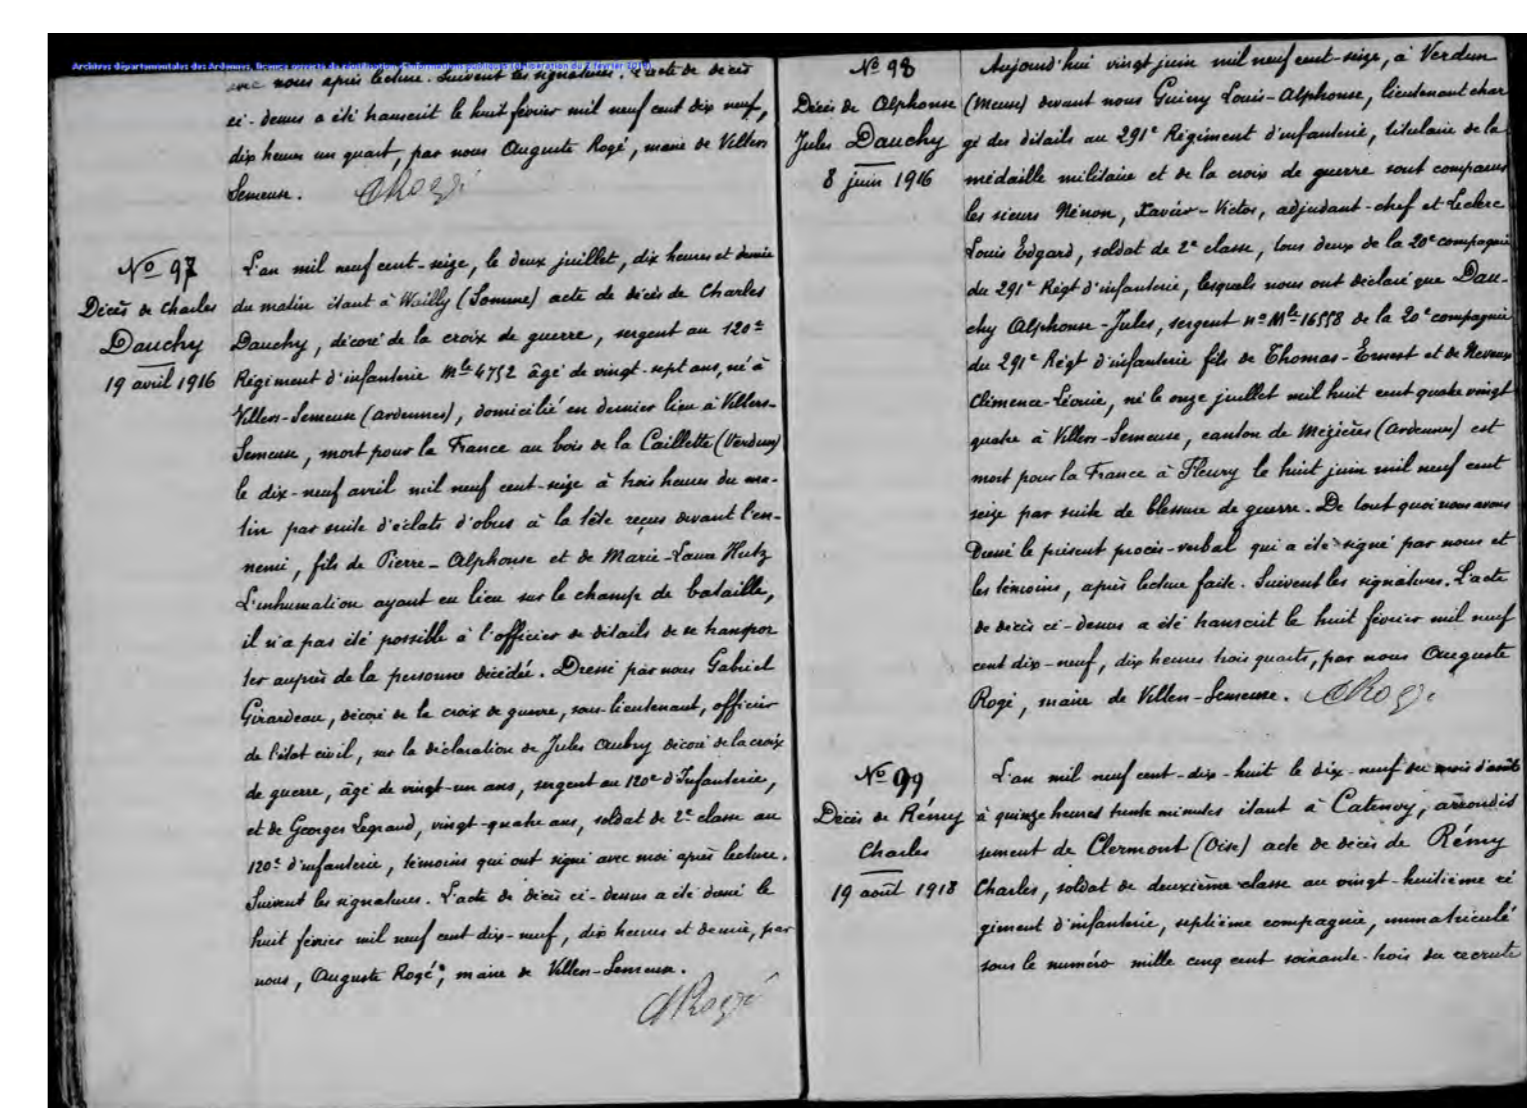 Archives départementales des Ardennes, licence ouverte de réutilisation d'informations publiques (délibération du 2 février 2018)
avec nous après lecture. Suivent les signatures. L'acte de décès
ci-dessus a été transcrit le huit février mil neuf cent dix neuf,
dix heures un quart, par nous Auguste Rogé, maire de Villers
Semeuse. ARogé
No 97
Décès de Charles
Dauchy
19 avril 1916
L'an mil neuf cent-seize, le deux juillet, dix heures et demie
du matin étant à Wailly (Somme) acte de décès de Charles
Dauchy, décoré de la croix de guerre, sergent au 120e
Régiment d'infanterie Mle 4752 âgé de vingt-sept ans, né à
Villers-Semeuse (Ardennes), domicilié en dernier lieu à Villers-
Semeuse, mort pour la France au bois de la Caillette (Verdun)
le dix-neuf avril mil neuf cent-seize à trois heures du ma-
tin par suite d'éclats d'obus à la tête reçus devant l'en-
nemi, fils de Pierre-Alphonse et de Marie-Laure Hutz
L'inhumation ayant eu lieu sur le champ de bataille,
il n'a pas été possible à l'officier de détails de se transpor
ter auprès de la personne décédée. Dressé par nous Gabriel
Girardeau, décoré de la croix de guerre, sous-lieutenant, officier
de l'état civil, sur la déclaration de Jules Aubry décoré de la croix
de guerre, âgé de vingt-un ans, sergent au 120e d'Infanterie,
et de Georges Legrand, vingt-quatre ans, soldat de 2e classe au
120e d'infanterie, témoins qui ont signé avec moi après lecture.
Suivent les signatures. L'acte de décès ci-dessus a été dressé le
huit février mil neuf cent dix-neuf, dix heures et demie, par
nous, Auguste Rogé, maire de Villers-Semeuse.
ARogé
No 98
Décès de Alphonse
Jules Dauchy
8 juin 1916
Aujourd'hui vingt juin mil neuf cent-seize, à Verdun
(Meuse) devant nous Guiny Louis-Alphonse, lieutenant char
gé des détails au 291e Régiment d'infanterie, titulaire de la
médaille militaire et de la croix de guerre sont comparus
les sieurs Nénon, Xavier-Victor, adjudant-chef et Leclerc
Louis Edgard, soldat de 2e classe, tous deux de la 20e compagnie
du 291e Régt d'infanterie, lesquels nous ont déclaré que Dau-
chy Alphonse-Jules, sergent no Mle 16558 de la 20e compagnie
du 291e Régt d'infanterie fils de Thomas-Ernest et de Neveux
Clémence-Léonie, né le onze juillet mil huit cent quatre vingt
quatre à Villers-Semeuse, canton de Mézières (Ardennes) est
mort pour la France à Fleury le huit juin mil neuf cent
seize par suite de blessure de guerre. De tout quoi nous avons
Dressé le présent procès-verbal qui a été signé par nous et
les témoins, après lecture faite. Suivent les signatures. L'acte
de décès ci-dessus a été transcrit le huit février mil neuf
cent dix-neuf, dix heures trois quarts, par nous Auguste
Rogé, maire de Villers-Semeuse. ARogé
No 99
Décès de Rémy
Charles
19 août 1918
L'an mil neuf cent-dix-huit le dix-neuf du mois d'août
à quinze heures trente minutes étant à Catenoy, arrondis
sement de Clermont (Oise) acte de décès de Rémy
Charles, soldat de deuxième classe au vingt-huitième ré
giment d'infanterie, septième compagnie, immatriculé
sous le numéro mille cinq cent soixante-trois du recrute